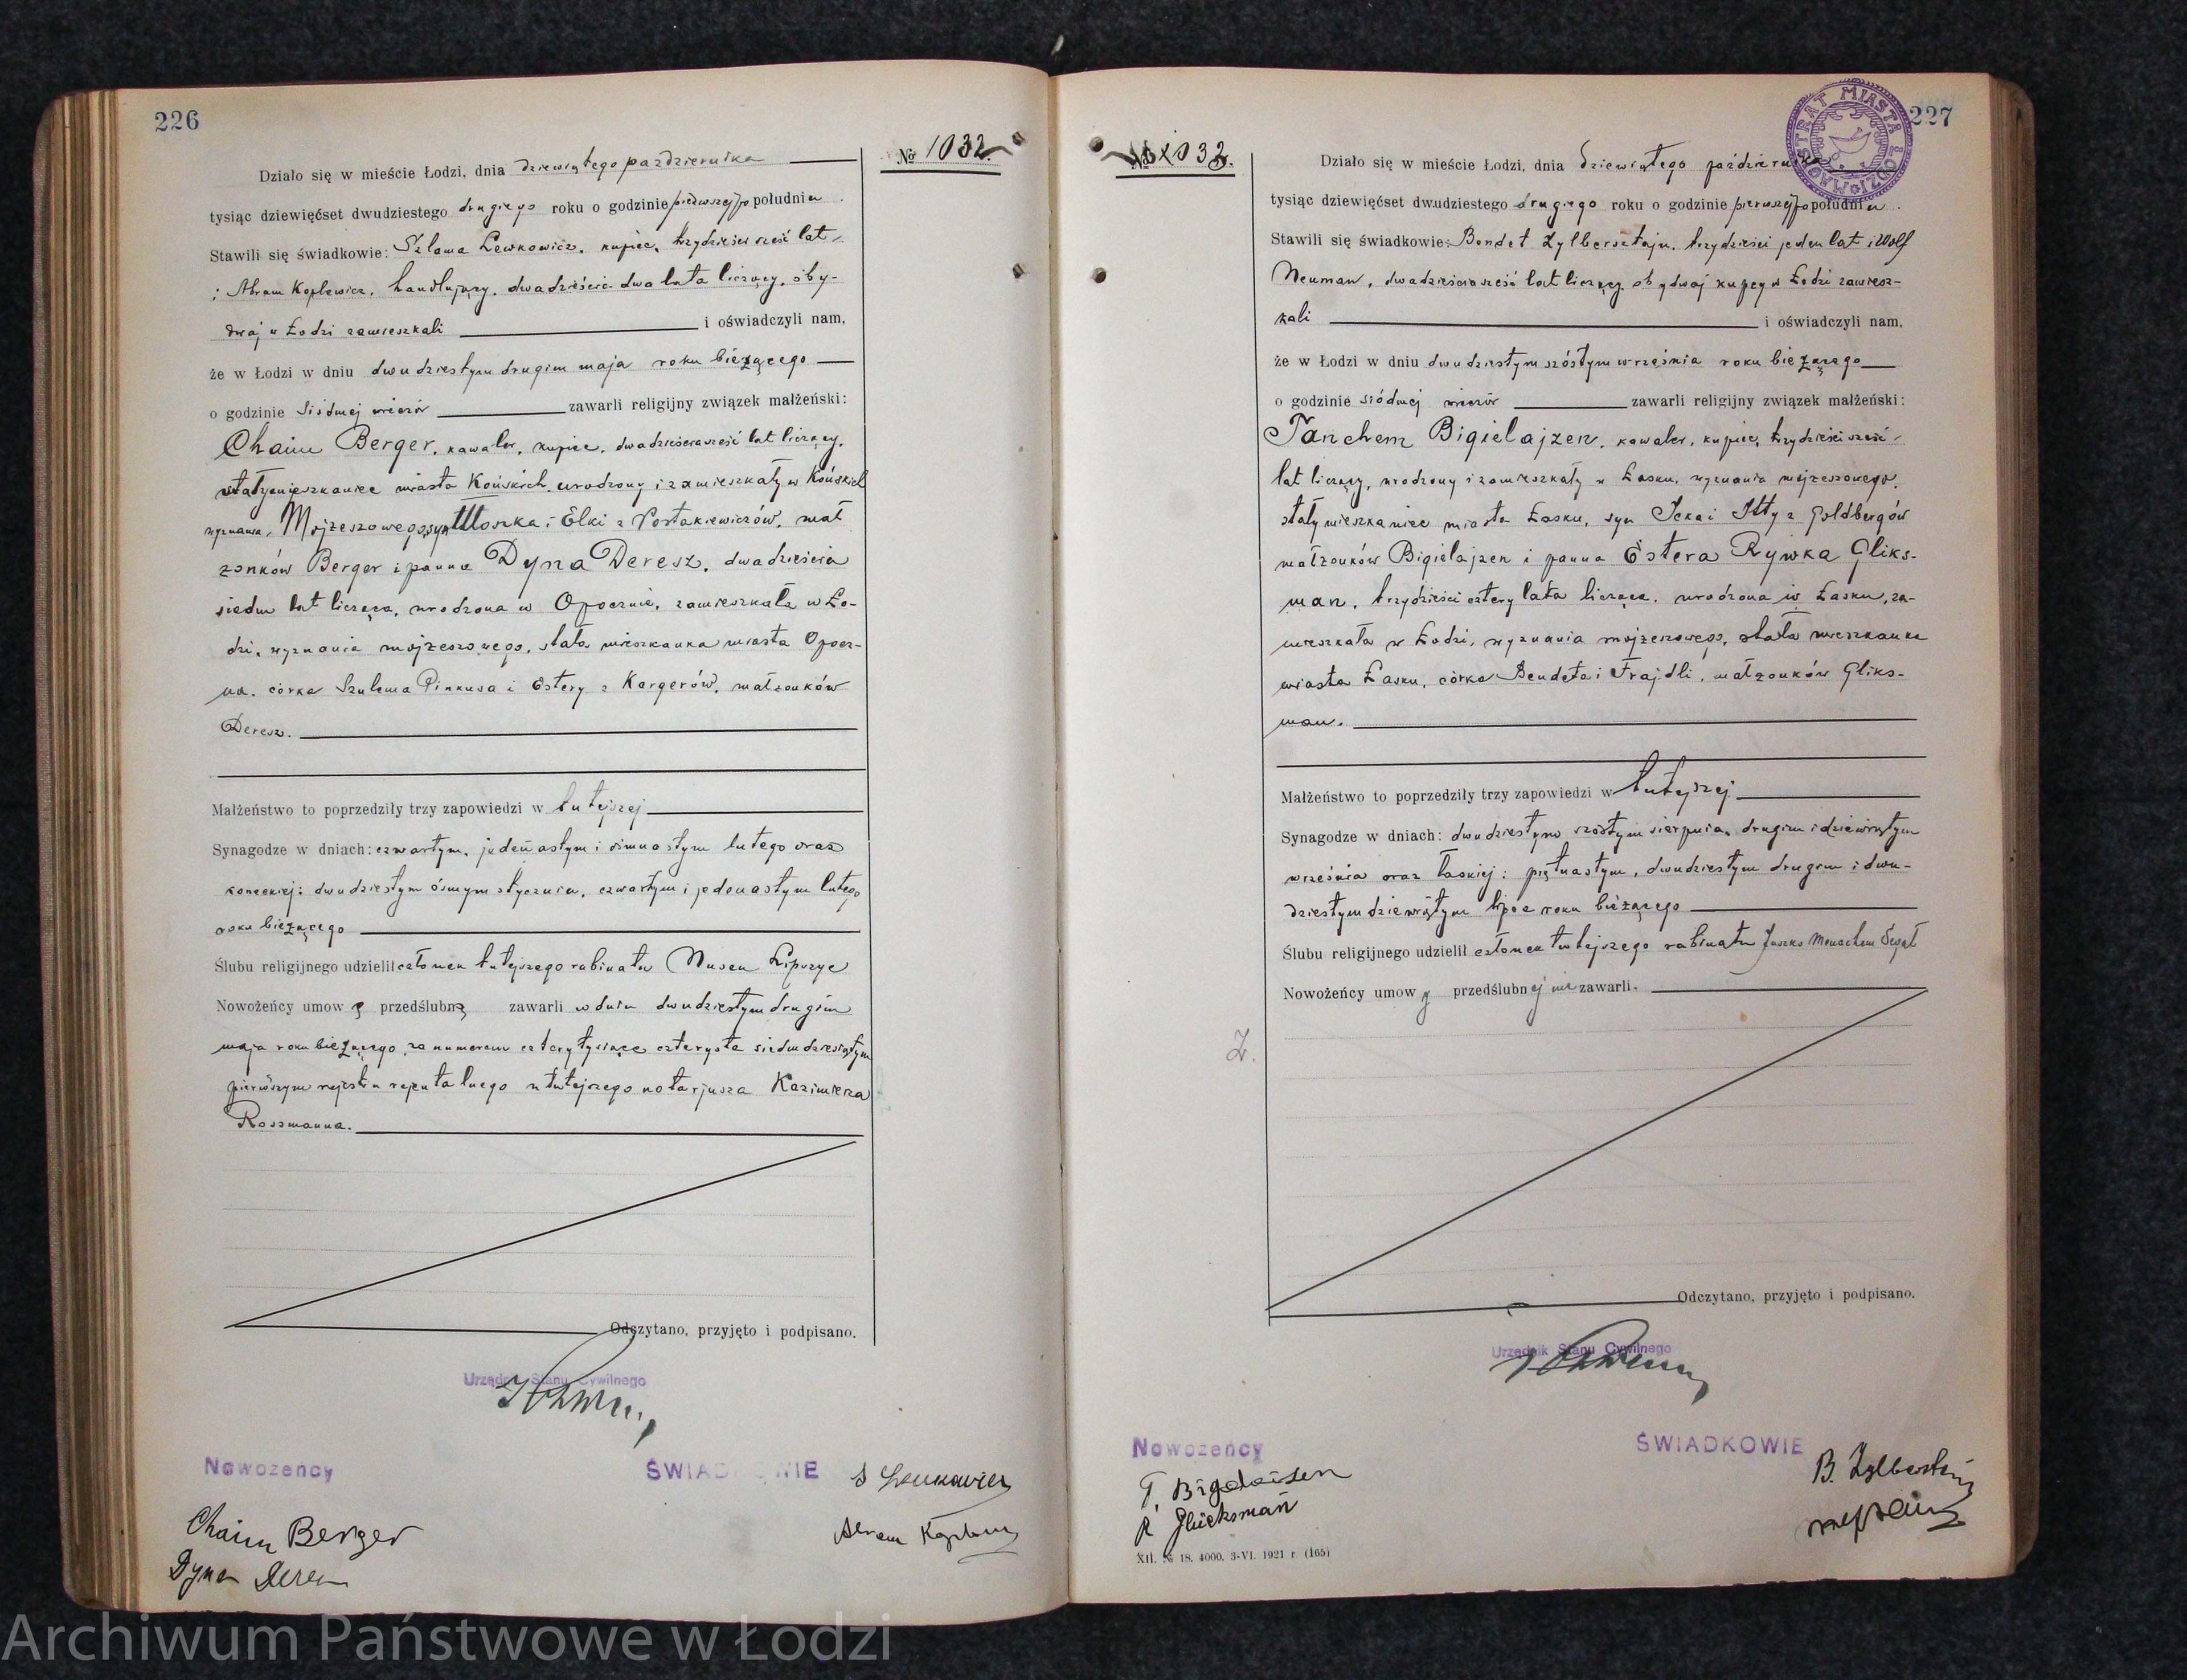 226
№ 1032.
Działo się w mieście Łodzi, dnia dziewiątego października
tysiąc dziewięćset dwudziestego drugiego roku o godzinie pierwszej popołudniu.
Stawili się świadkowie: Szlama Lewkowicz, kupiec, trzydzieści sześć lat
i Abram Koplewicz, handlujący, dwadzieścia dwa lata liczący, oby-
dwaj w Łodzi zamieszkali i oświadczyli nam,
że w Łodzi w dniu dwudziestym drugim maja roku bieżącego
o godzinie siódmej wieczór zawarli religijny związek małżeński:
Chaim Berger, kawaler, kupiec, dwadzieścia sześć lat liczący,
stały mieszkaniec miasta Końskich, urodzony i zamieszkały w Końskich
wyznania Mojżeszowego, syn Moszka i Elki z Postakiewiczów, mał
żonków Berger i panna Dyna Deresz, dwadzieścia
siedm lat licząca, urodzona w Opocznie, zamieszkała w Ło-
dzi, wyznania mojżeszowego, stała mieszkanka miasta Opocz-
na, córka Szulema Pinkusa i Estery z Kargerów, małżonków
Deresz.
Małżeństwo to poprzedziły trzy zapowiedzi w tutejszej
Synagodze w dniach: czwartym, jedenastym i ośmnastym lutego oraz
koneckiej: dwudziestym ósmym stycznia, czwartym i jedenastym lutego
roku bieżącego
Ślubu religijnego udzielił członek tutejszego rabinatu Nusen Lipszyc
Nowożeńcy umowę przedślubną zawarli w dniu dwudziestym drugim
maja roku bieżącego za numerem cztery tysiące czterysta siedmdziesiątym
pierwszym rejestru repertalnego u tutejszego notarjusza Kazimierza
Rossmanna.
Odczytano, przyjęto i podpisano.
Urzędnik Stanu Cywilnego
Nowożeńcy
ŚWIADKOWIE
S Lewkowicz
Chaim Berger
Abram
Dyna Deresz
227
MAGISTRAT MIASTA ŁODZI
№ 1033.
Działo się w mieście Łodzi, dnia dziewiątego października
tysiąc dziewięćset dwudziestego drugiego roku o godzinie pierwszej popołudniu.
Stawili się świadkowie: Bendet Zylbersztajn, trzydzieści jeden lat i Wolf
Neuman, dwadzieścia sześć lat liczący, obydwaj kupcy w Łodzi zamiesz-
kali i oświadczyli nam,
że w Łodzi w dniu dwudziestym szóstym września roku bieżącego
o godzinie siódmej wieczór zawarli religijny związek małżeński:
Tanchem Bigielajzen, kawaler, kupiec, trzydzieści sześć
lat liczący, urodzony i zamieszkały w Łasku, wyznania mojżeszowego,
stały mieszkaniec miasta Łasku, syn Icka i Itty z Goldbergów
małżonków Bigielajzen i panna Estera Rywka Gliks-
man, trzydzieści cztery lata licząca, urodzona w Łasku, za-
mieszkała w Łodzi, wyznania mojżeszowego, stała mieszkanka
miasta Łasku, córka Bendeta i Frajdli, małżonków Gliks-
man.
Małżeństwo to poprzedziły trzy zapowiedzi w tutejszej
Synagodze w dniach: dwudziestym szóstym sierpnia, drugim i dziewiątym
września oraz łaskiej: piętnastym, dwudziestym drugim i dwu-
dziestym dziewiątym lipca roku bieżącego
Ślubu religijnego udzielił członek tutejszego rabinatu Menachem Segał
Nowożeńcy umowy przedślubnej nie zawarli.
Z.
Odczytano, przyjęto i podpisano.
Urzędnik Stanu Cywilnego
Nowożeńcy
ŚWIADKOWIE
T. Bigelaisen
R Glücksman
XII. № 18. 4000. 3-VI. 1921 r. (165)
Archiwum Państwowe w Łodzi